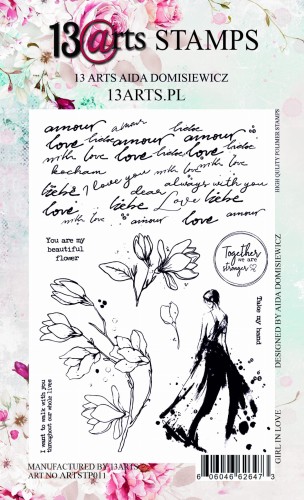 13@rts STAMPS
13 ARTS AIDA DOMISIEWICZ
13ARTS.PL
amour amour liebe
love liebe amour amour
with love love liebe love
kocham love
liebe I love you with love
dear always with you
love liebe Love liebe
with love amour love amour
You are my
beautiful
flower
Together
we are
stronger
Take my hand
I want to walk with you
throughout our whole lives
HIGH QUALITY POLIMER STAMPS
DESIGNED BY AIDA DOMISIEWICZ
GIRL IN LOVE
MANUFACTURED BY 13ARTS
ART NO ARTSTP011
6 06046 62647 3